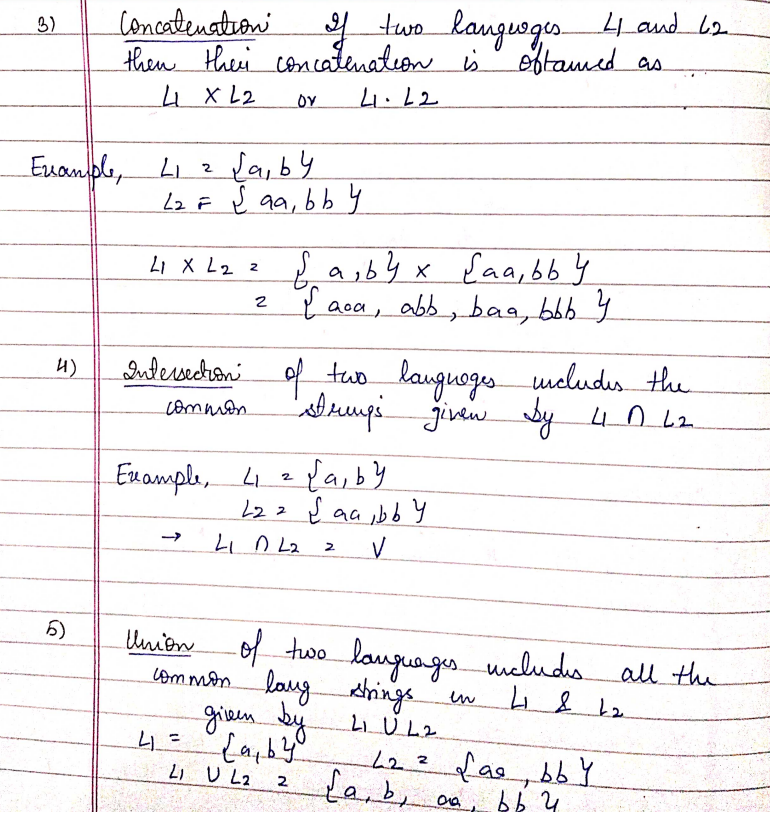 3) Concatenation: If two languages L1 and L2
then their concatenation is obtained as
L1 X L2 or L1 . L2
Example, L1 = {a, b}
L2 = {aa, bb}
L1 X L2 = {a, b} x {aa, bb}
= {aaa, abb, baa, bbb}
4) Intersection: of two languages includes the
common strings given by L1 ∩ L2
Example, L1 = {a, b}
L2 = {aa, bb}
→ L1 ∩ L2 =
5) Union of two languages includes all the
common lang strings in L1 & L2
given by L1 U L2
L1 = {a, b} L2 = {aa, bb}
L1 U L2 = {a, b, aa, bb}